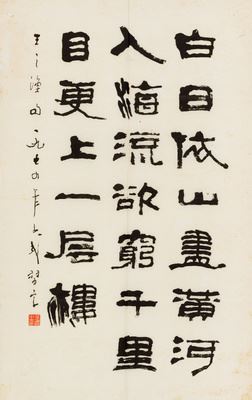 白日依山盡黃河
入海流欲窮千里
目更上一层樓
王之渙句一九七